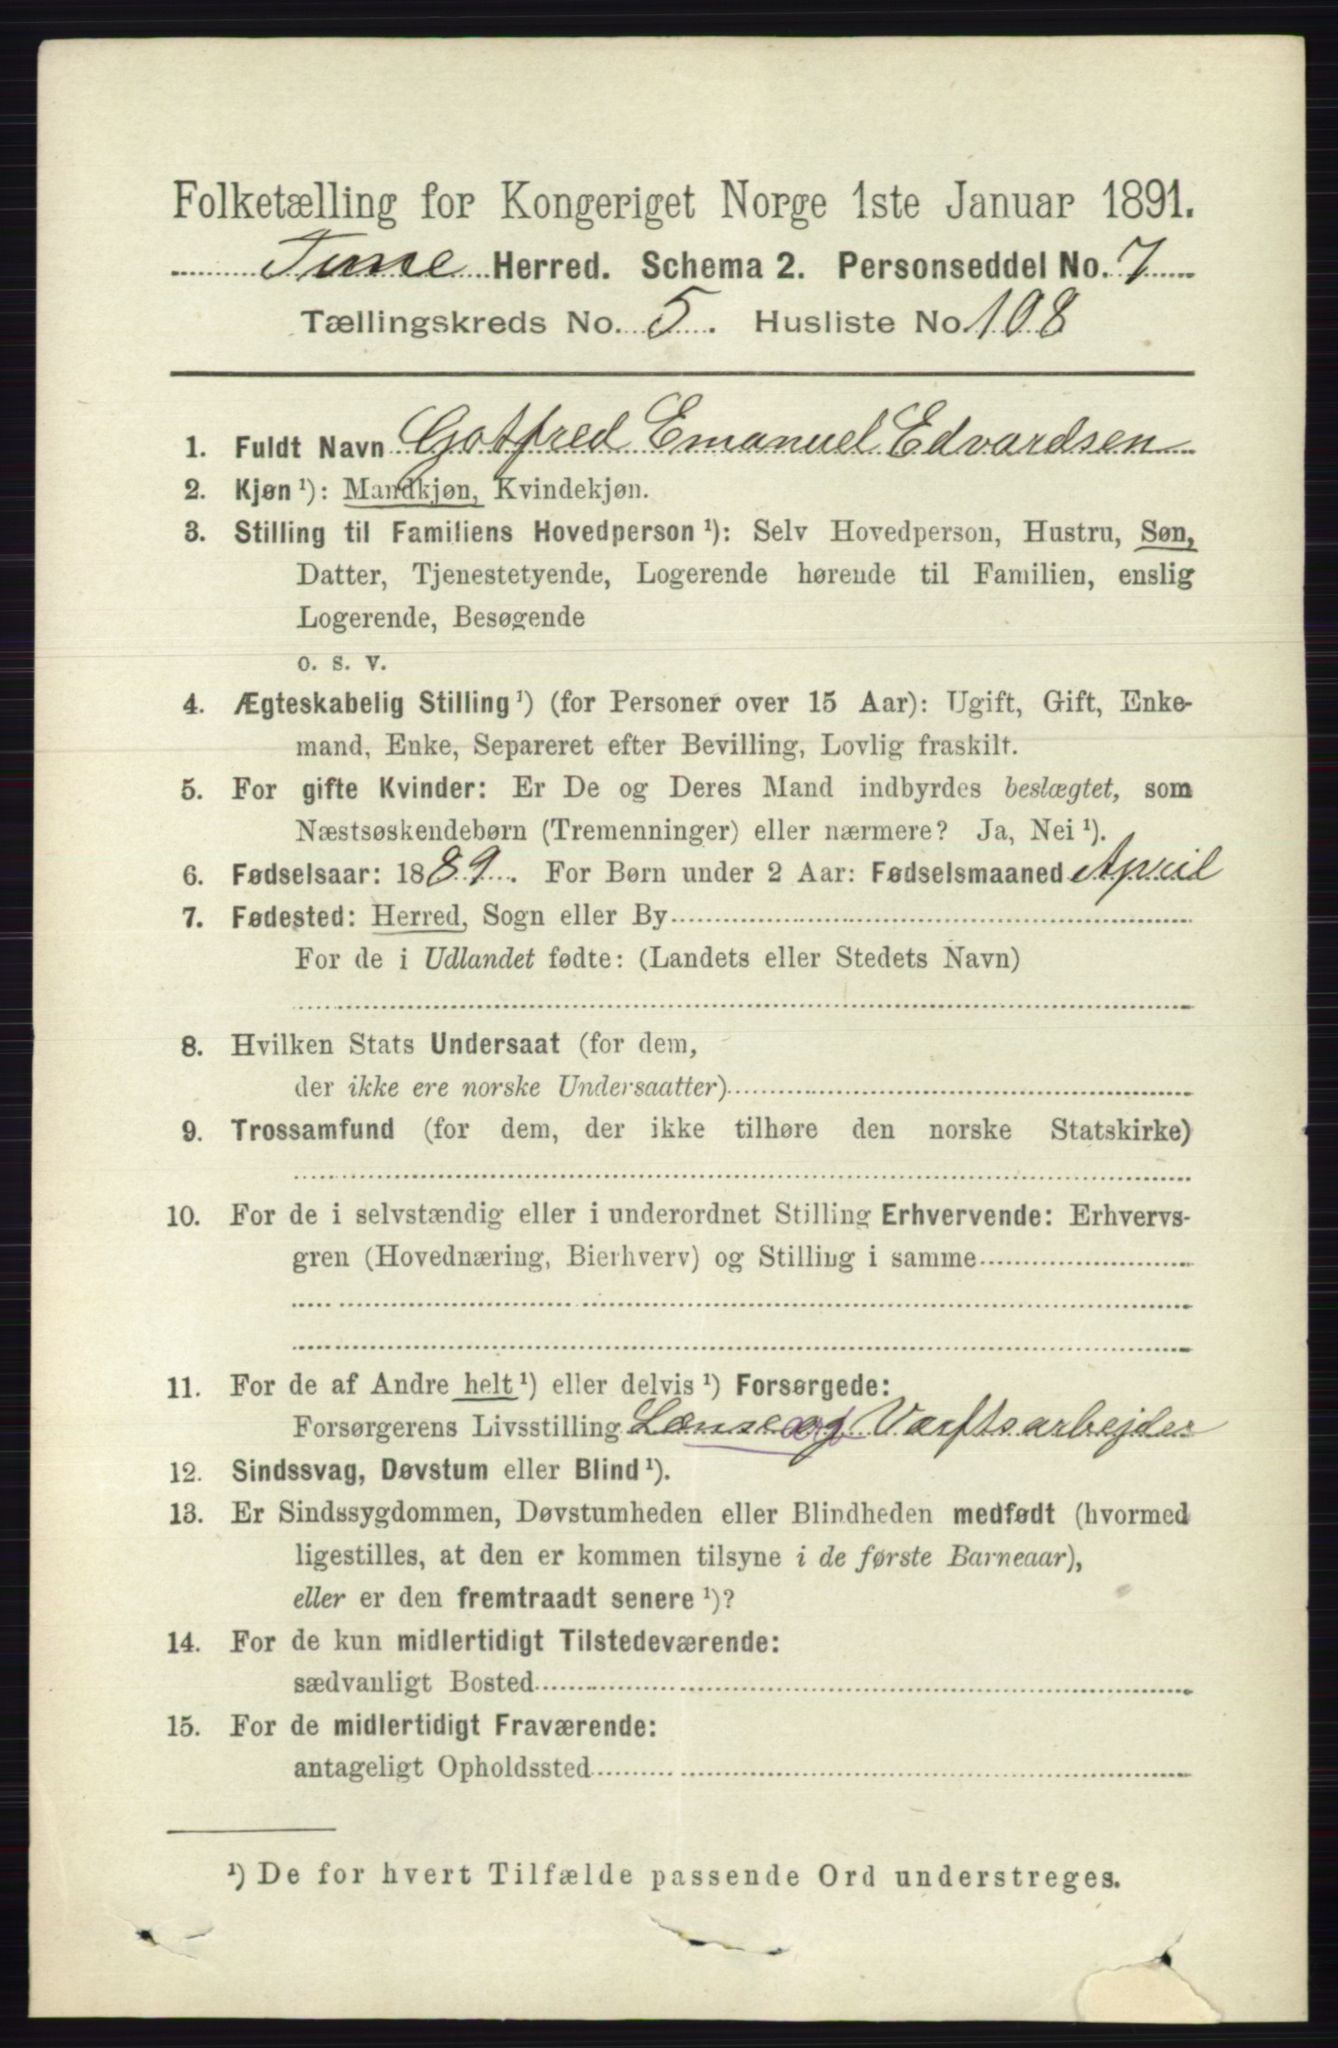 Folketælling for Kongeriget Norge 1ste Januar 1891.
Tune Herred. Schema 2. Personseddel No. 7
Tællingskreds No. 5. Husliste No. 108
1. Fuldt Navn Gotfred Emanuel Edvardsen
2. Kjøn ¹): Mandkjøn, Kvindekjøn.
3. Stilling til Familiens Hovedperson ¹): Selv Hovedperson, Hustru, Søn,
Datter, Tjenestetyende, Logerende hørende til Familien, enslig
Logerende, Besøgende
o. s. v.
4. Ægteskabelig Stilling ¹) (for Personer over 15 Aar): Ugift, Gift, Enke-
mand, Enke, Separeret efter Bevilling, Lovlig fraskilt.
5. For gifte Kvinder: Er De og Deres Mand indbyrdes beslægtet, som
Næstsøskendebørn (Tremenninger) eller nærmere? Ja, Nei ¹).
6. Fødselsaar: 1889. For Børn under 2 Aar: Fødselsmaaned April
7. Fødested: Herred, Sogn eller By
For de i Udlandet fødte: (Landets eller Stedets Navn)
8. Hvilken Stats Undersaat (for dem,
der ikke ere norske Undersaatter)
9. Trossamfund (for dem, der ikke tilhøre den norske Statskirke)
10. For de i selvstændig eller i underordnet Stilling Erhvervende: Erhvervs-
gren (Hovednæring, Bierhverv) og Stilling i samme
11. For de af Andre helt ¹) eller delvis ¹) Forsørgede:
Forsørgerens Livsstilling Lænse og Værftsarbejder
12. Sindssvag, Døvstum eller Blind ¹).
13. Er Sindssygdommen, Døvstumheden eller Blindheden medfødt (hvormed
ligestilles, at den er kommen tilsyne i de første Barneaar),
eller er den fremtraadt senere ¹)?
14. For de kun midlertidigt Tilstedeværende:
sædvanligt Bosted
15. For de midlertidigt Fraværende:
antageligt Opholdssted
¹) De for hvert Tilfælde passende Ord understreges.